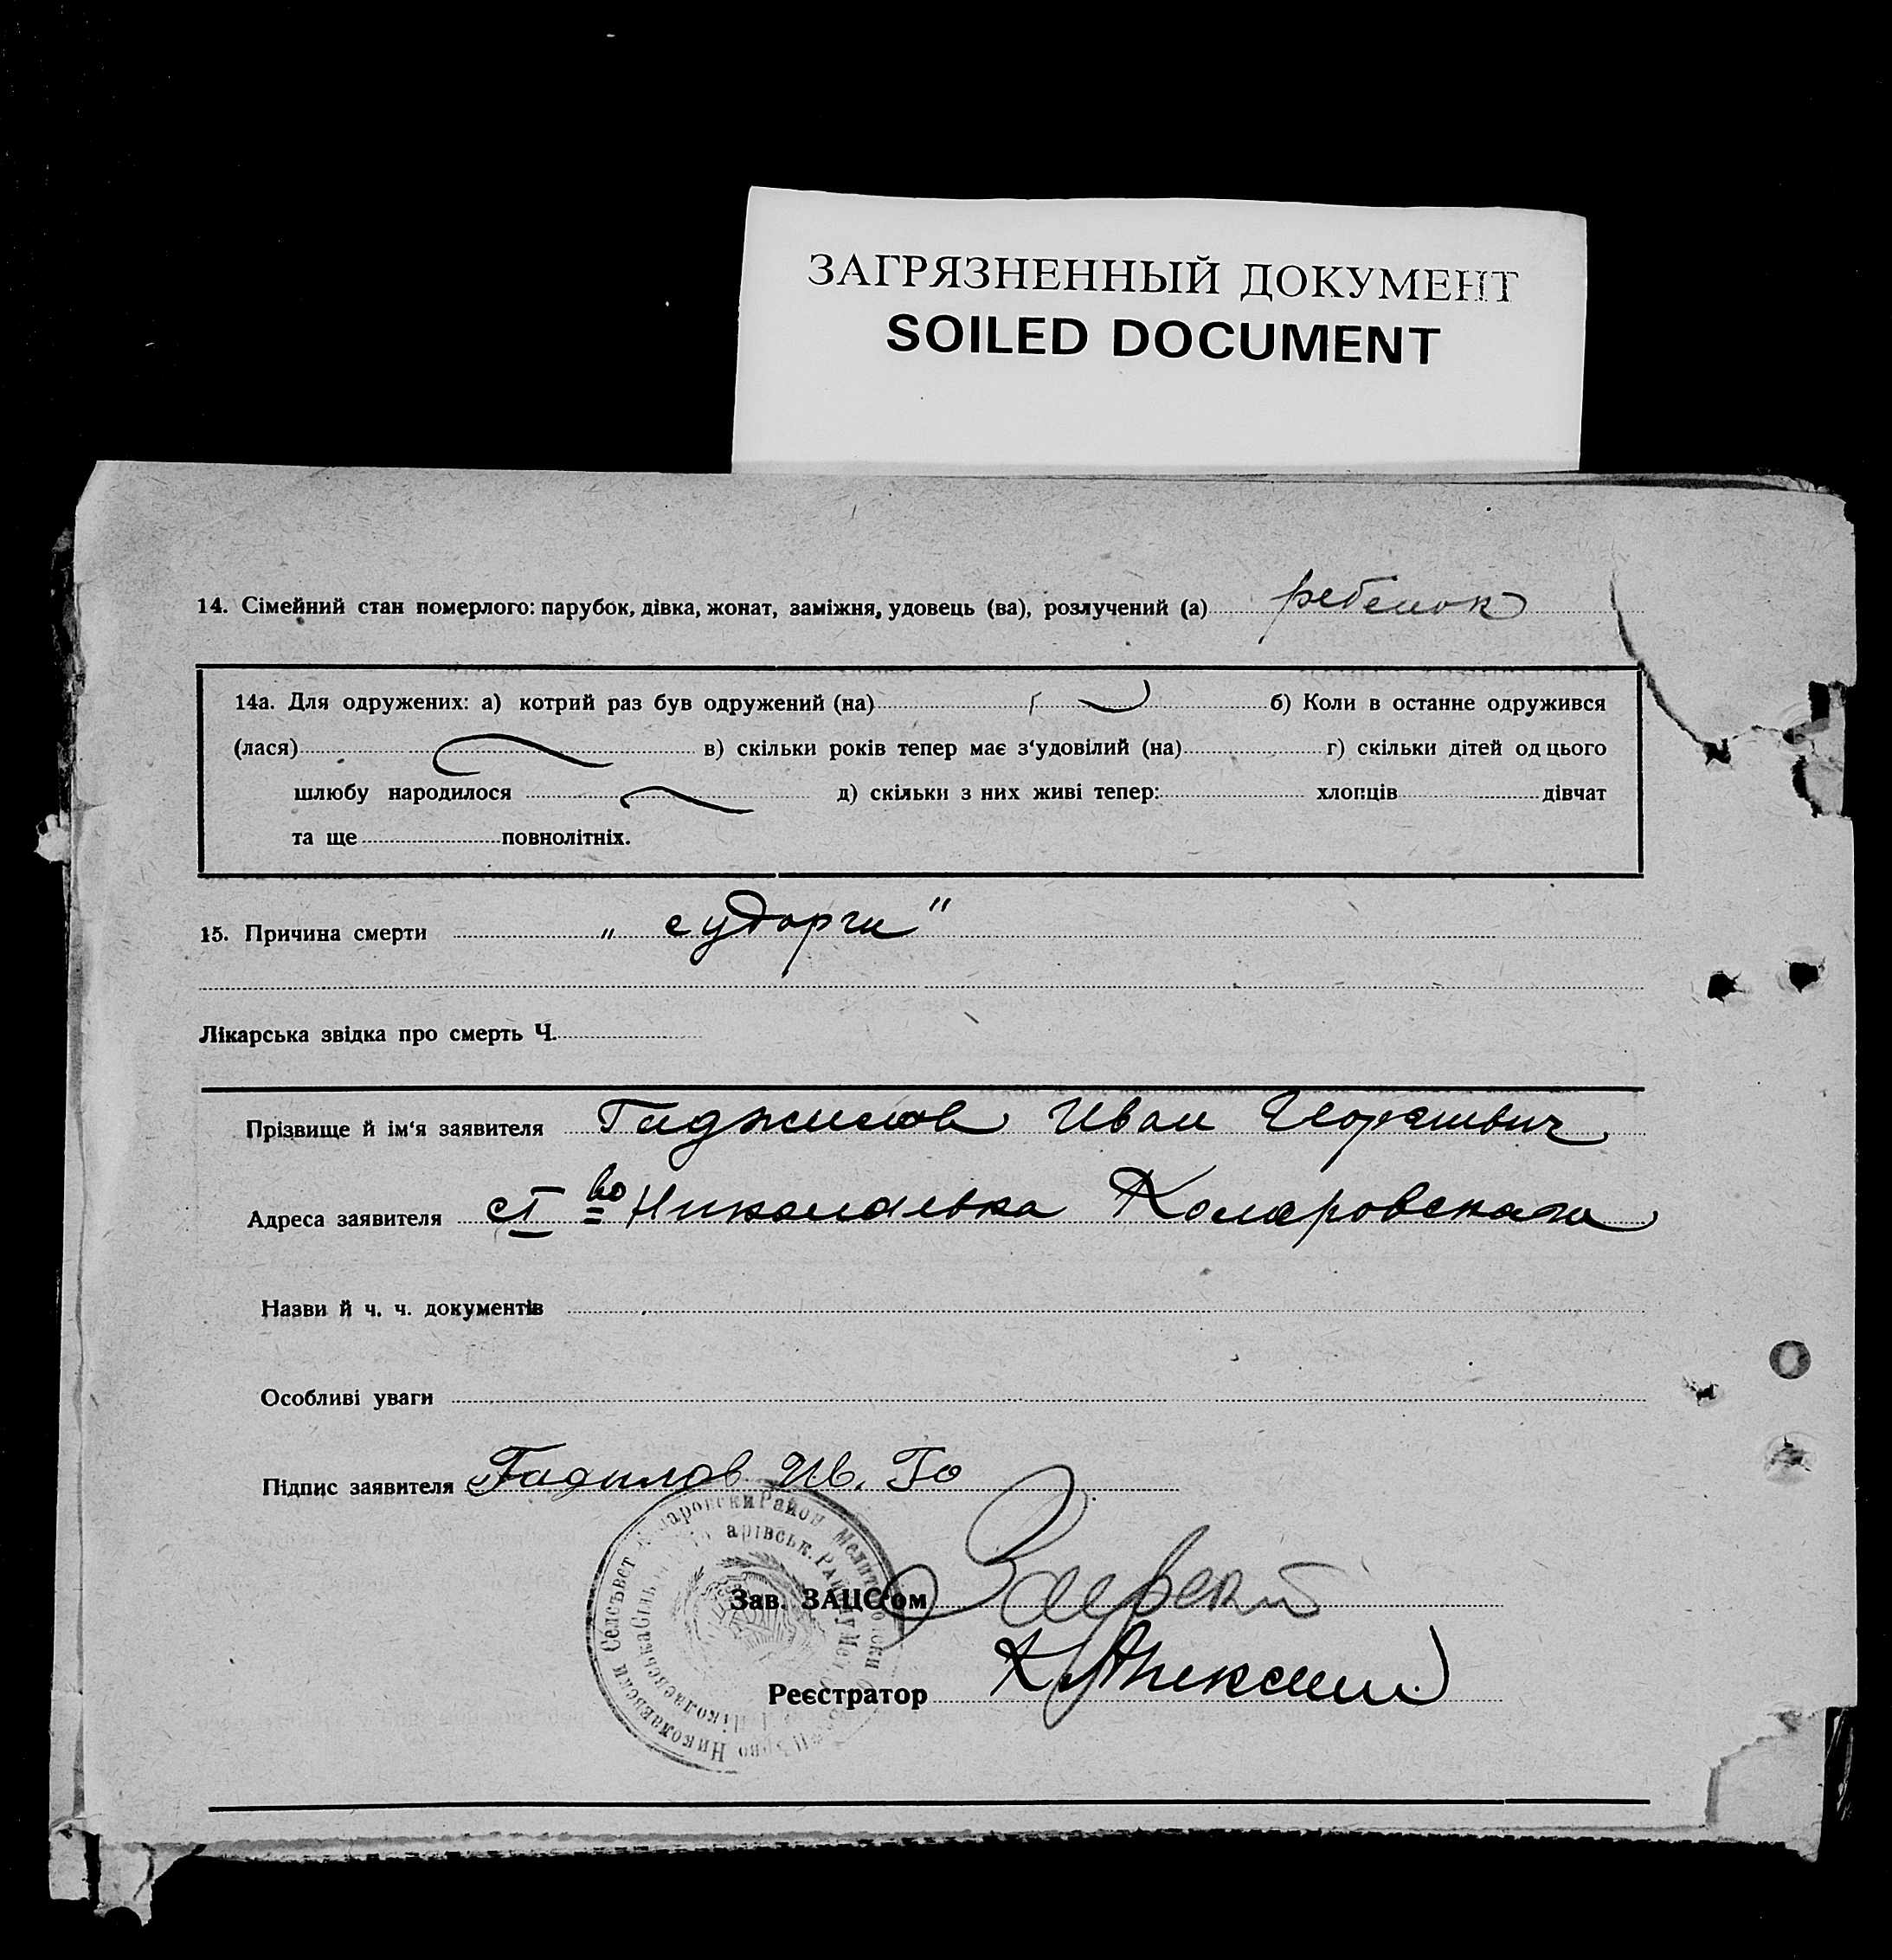 ЗАГРЯЗНЕННЫЙ ДОКУМЕНТ
SOILED DOCUMENT
14. Сімейний стан померлого: парубок, дівка, жонат, заміжня, удовець (ва), розлучений (а) ребенок
14а. Для одружених: а) котрий раз був одружений (на) б) Коли в останне одружився
(лася) в) скільки років тепер має з'удовілий (на) г) скільки дітей од цього
шлюбу народилося д) скільки з них живі тепер: хлопців дівчат
та ще повнолітніх.
15. Причина смерти „судорги"
Лікарська звідка про смерть Ч.
Прізвище й ім'я заявителя Иван
Адреса заявителя Николаевка Комаровскага
Назви й ч. ч. документів
Особливі уваги
Підпис заявителя Ив. Го
Зав. ЗАЦС'ом
Реєстратор
Николаевски Селсъвет Район